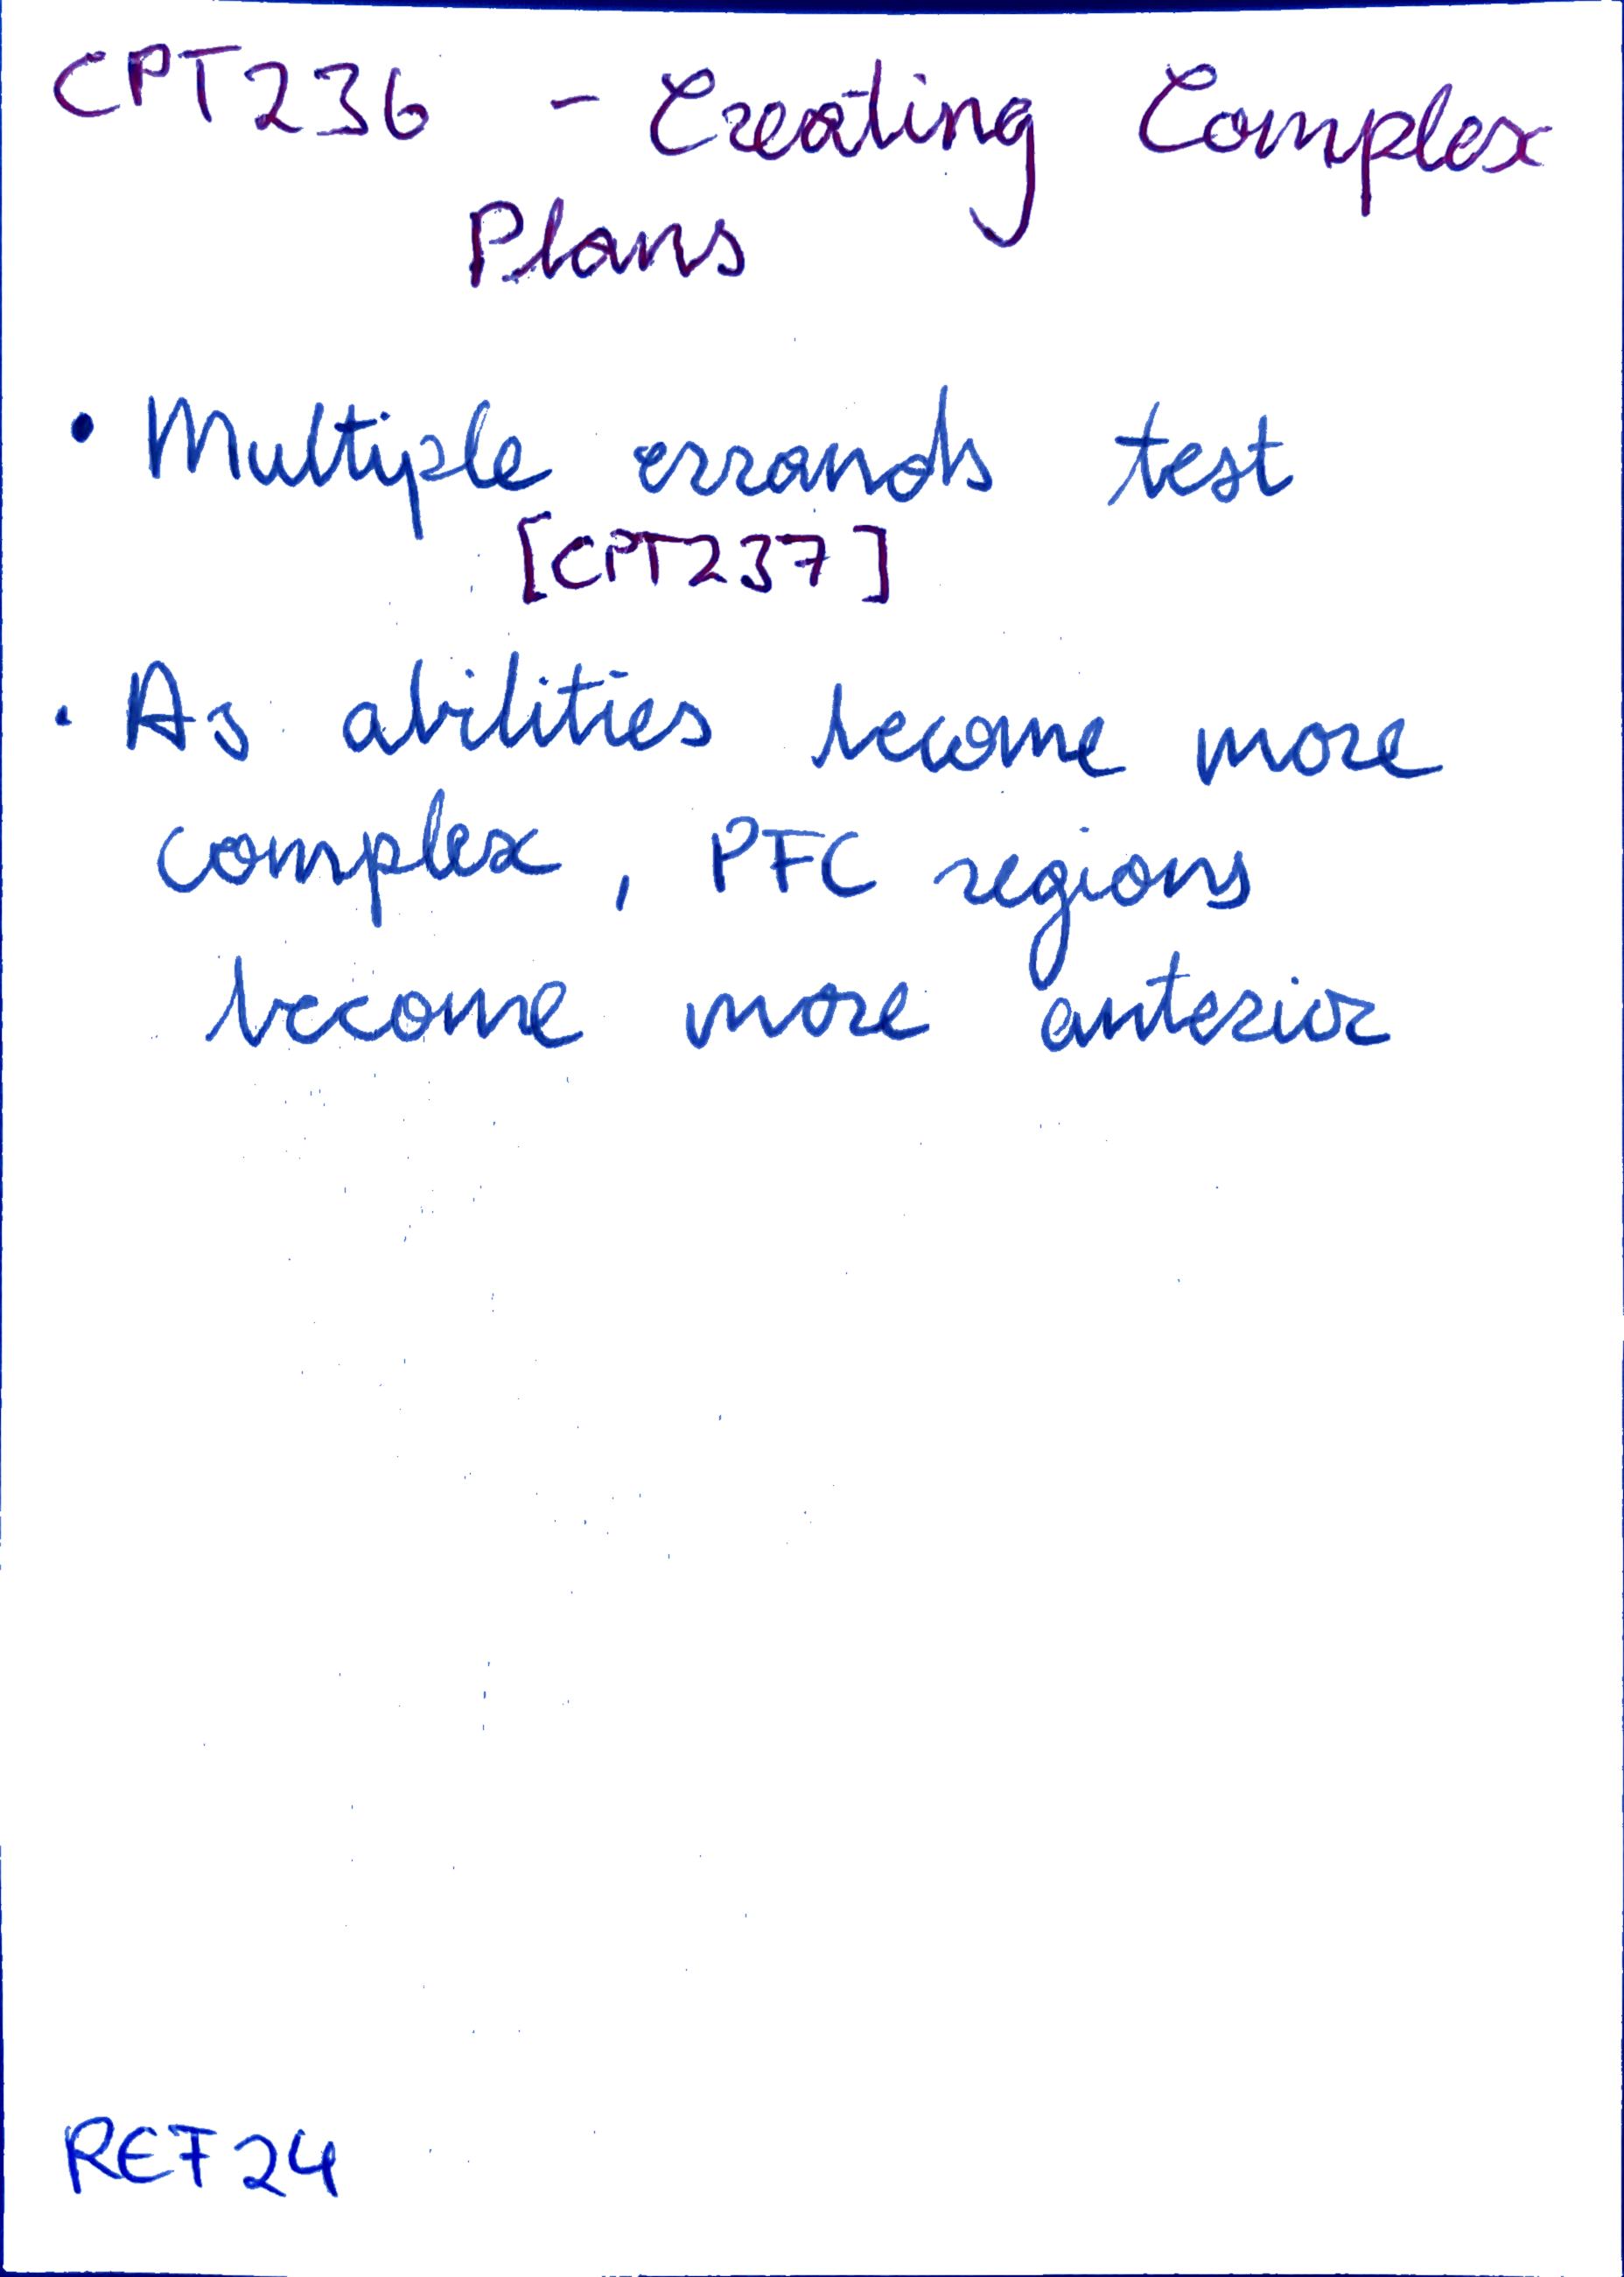 CPT236 - Creating Complex
Plans
• Multiple errands test
[CPT237]
• As abilities become more
complex, PFC regions
become more anterior
REF24